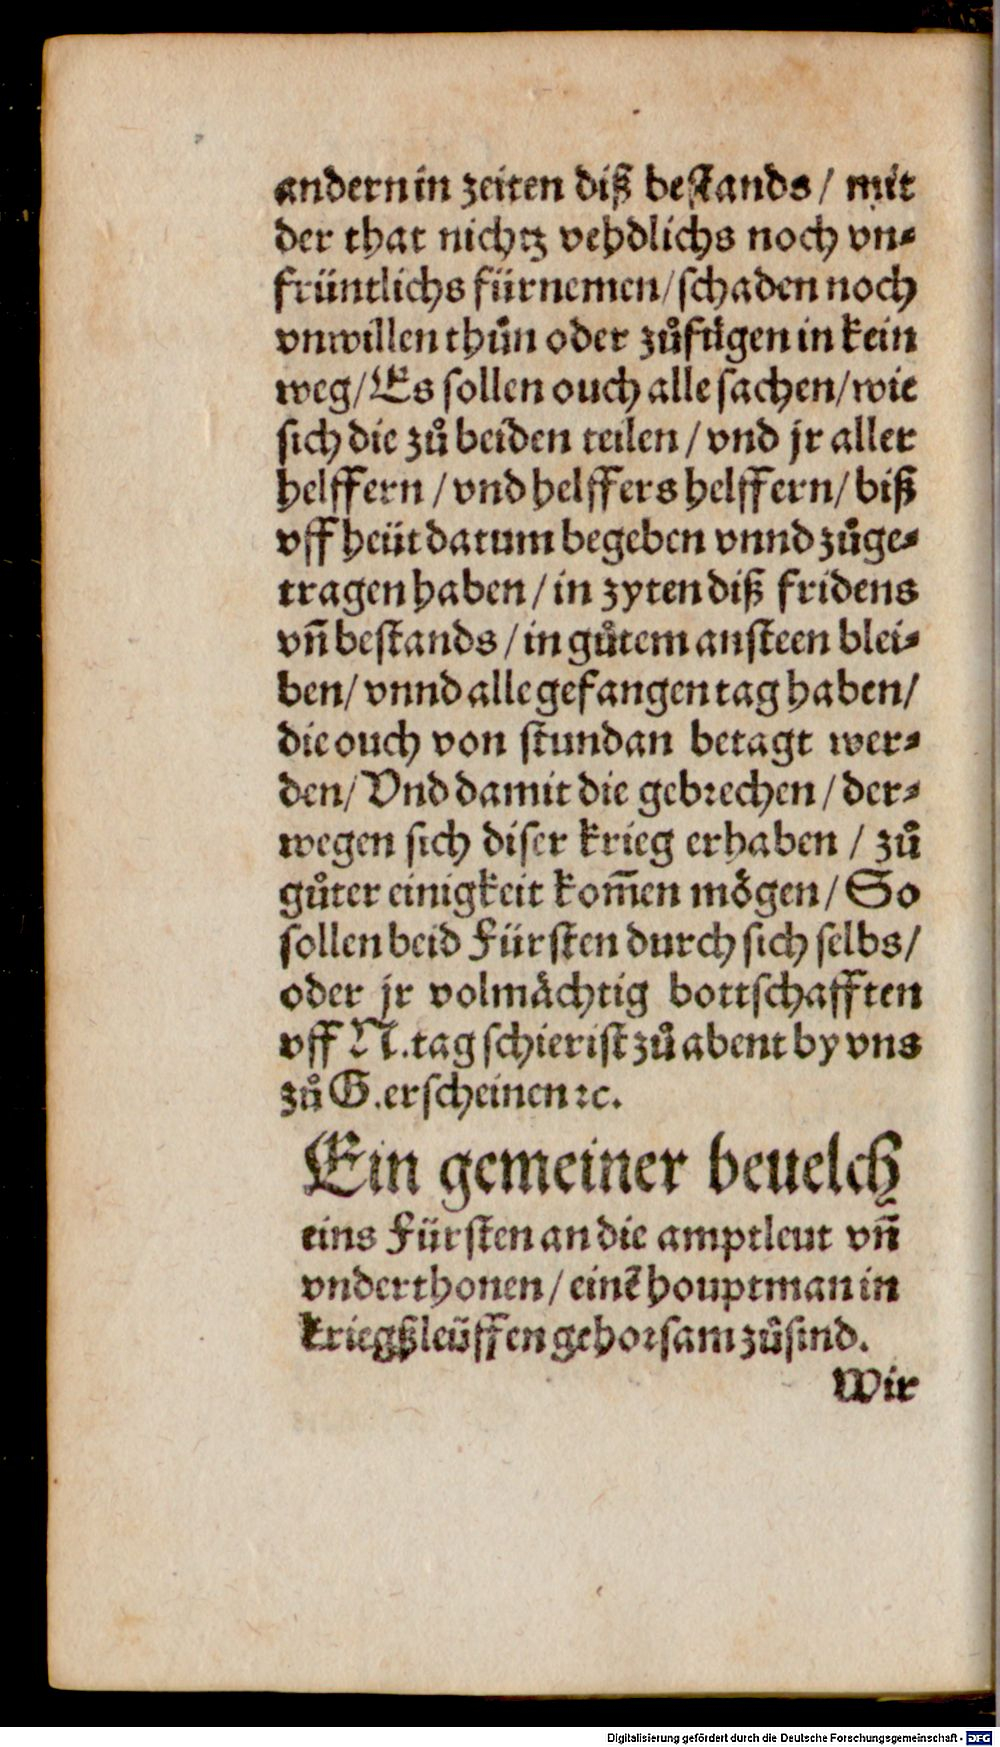 andern in zeiten diß bestands / mit
der that nichtz vehdlichs noch vn⸗
früntlichs fürnemen / schaden noch
vnwillen thůn oder zůfügen in kein
weg / Es sollen ouch alle sachen / wie
sich die zů beiden teilen / vnd jr aller
helffern / vnd helffers helffern / biß
vff heüt datum begeben vnnd zůge⸗
tragen haben / in zyten diß fridens
vñ bestands / in gůtem ansteen blei⸗
ben / vnnd alle gefangen tag haben /
die ouch von stundan betagt wer⸗
den / Vnd damit die gebrechen / der⸗
wegen sich diser krieg erhaben / zů
gůter einigkeit kom̄en mögen / So
sollen beid Fürsten durch sich selbs /
oder jr volmächtig bottschafften
vff N. tag schierist zů abent by vns
zů G. erscheinen ꝛc.
Ein gemeiner beuelch
eins Fürsten an die amptleut vñ
vnderthonen / einē houptman in
kriegßleüffen gehorsam zůsind.
Wir
Digitalisierung gefördert durch die Deutsche Forschungsgemeinschaft - DFG